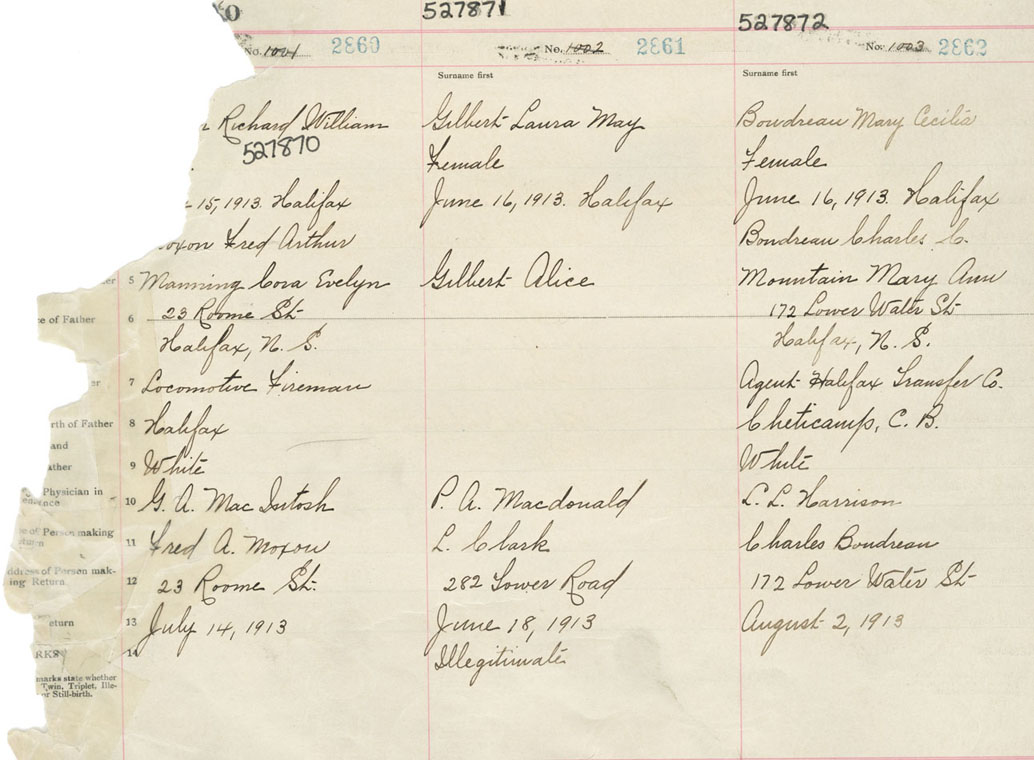 527871
527872
No. 1001 2860
No. 1002 2861
No. 1003 2862
Surname first
Surname first
Richard William
527870
Gilbert Laura May
Boudreau Mary Cecilia
Female
Female
15, 1913. Halifax
June 16, 1913. Halifax
June 16, 1913. Halifax
Fred Arthur
Boudreau Charles C.
5 Manning Cora Evelyn
Gilbert Alice
Mountain Mary Ann
of Father 6 23 Roome St.
172 Lower Water St
Halifax, N. S.
Halifax, N. S.
7 Locomotive Fireman
Agent Halifax Transfer Co.
rth of Father 8 Halifax
Cheticamp, C. B.
and
ather 9 White
White
Physician in
10 G. A. Mac Intosh
P. A. Macdonald
L. L. Harrison
of Person making
11 Fred A. Moxon
L. Clark
Charles Boudreau
ddress of Person mak-
ing Return. 12 23 Roome St.
282 Tower Road
172 Lower Water St
eturn 13 July 14, 1913
June 18, 1913
August 2, 1913
RKS 14
Illegitimate
marks state whether
Twin, Triplet, Ille-
or Still-birth.